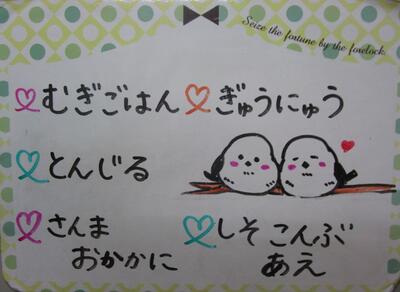 Seize the fortune by the forelock.
むぎごはん ぎゅうにゅう
とんじる
さんま しそこんぶ
おかかに あえ